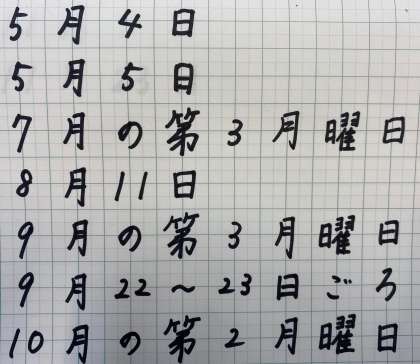 5月4日
5月5日
7月の第3月曜日
8月11日
9月の第3月曜日
9月22～23日ごろ
10月の第2月曜日